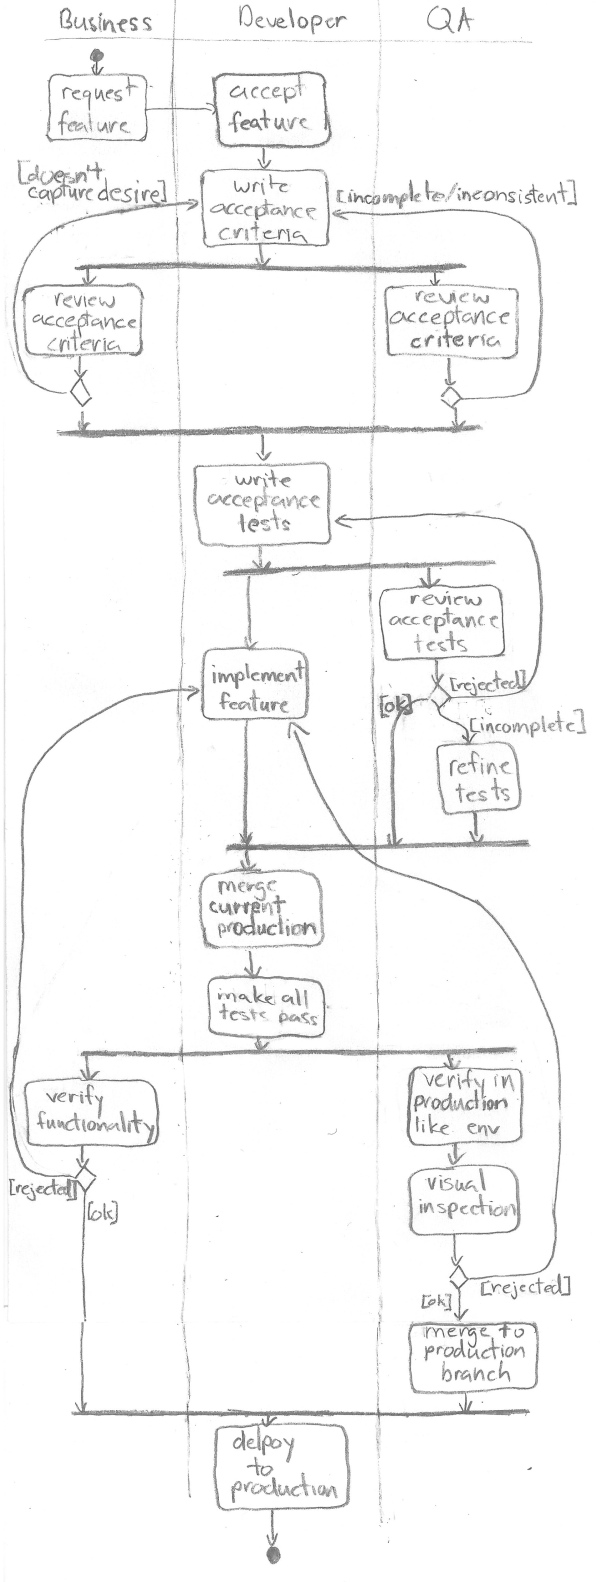 Business
Developer
QA
request
feature
accept
feature
[doesn't
capture desire]
write
acceptance
criteria
[incomplete/inconsistent]
review
acceptance
criteria
review
acceptance
criteria
write
acceptance
tests
review
acceptance
tests
implement
feature
[rejected]
[ok]
[incomplete]
refine
tests
merge
current
production
make all
tests pass
verify
functionality
verify in
production
like env
[rejected]
[ok]
visual
inspection
[rejected]
[ok]
merge to
production
branch
delpoy
to
production